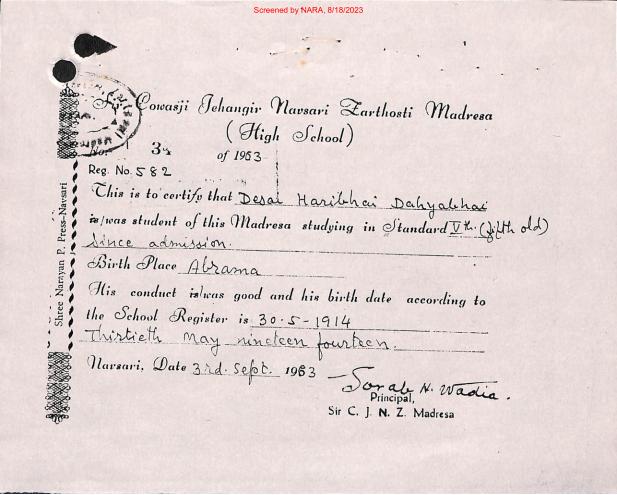 Screened by NARA, 8/18/2023
Sir Cowasji Jehangir Navsari Zarthosti Madresa
(High School)
No. 34 of 1963
Reg. No. 582
This is to certify that Desai Haribhai Dahyabhai
is/was student of this Madresa studying in Standard Vth. (fifth old)
Since admission.
Birth Place Abrama
His conduct is/was good and his birth date according to
the School Register is 30-5-1914
Thirtieth May nineteen fourteen.
Navsari, Date 3rd. Sept. 1963
Sorab H. Wadia.
Principal,
Sir C. J. N. Z. Madresa
Shree Narayan P. Press-Navsari